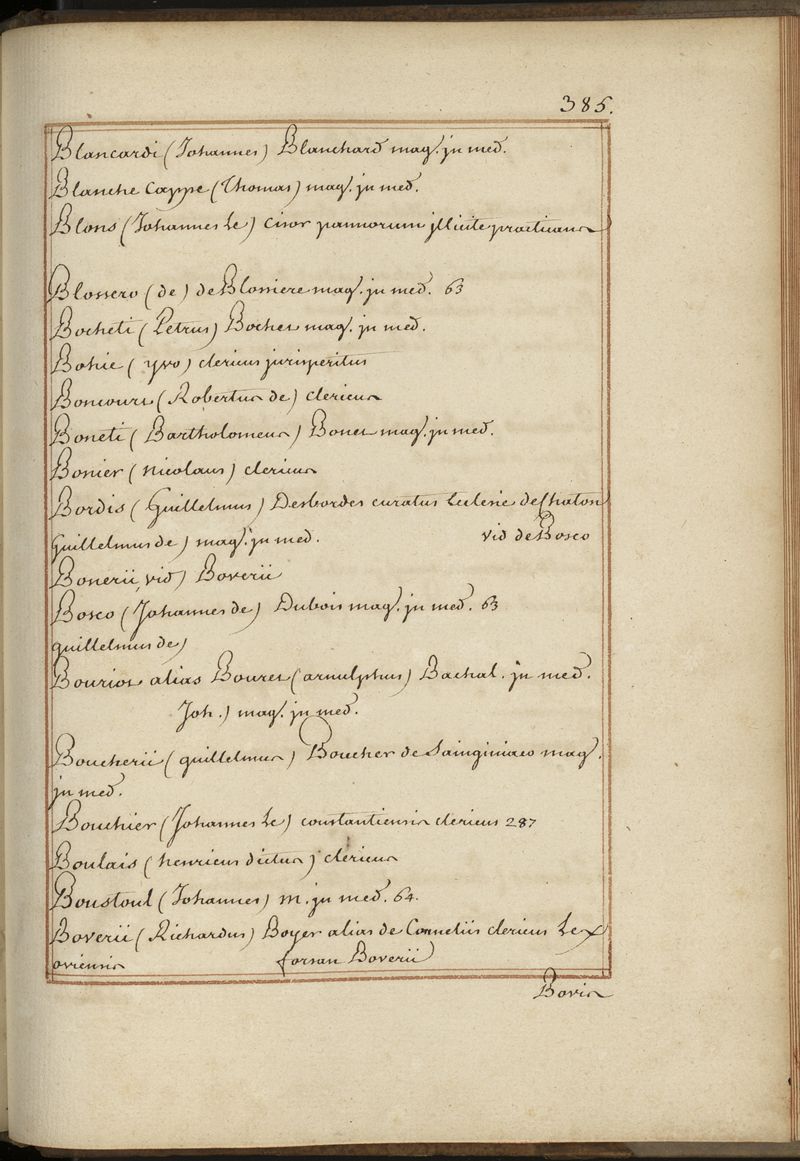 385.
Blancardi (Johannes) Blanchard mag. jn med.
Blanche Cappe (Thomas) mag. jn med.
Blons (Johannes Le) cisor pannorum jllicite practicans
Blossero (de) de Blossiere mag. jn med. 63
Bocheti (Petrus) Bochet mag. jn med.
Bohic (yvo) clericus jurisperitus
Boncourt (Robertus de) clericus
Boneti (Bartholomeus) Bonet mag. jn med.
Bonier (nicolaus) clericus
Bordis (Guillelmus) Desbordes curatus Ecclesie de Chaton
Guillelmus de) mag. jn med. vid de Bosco
Bonerii vid) Boverii
Bosco (Johannes de) Dubois mag. jn med. 63
guillelmus de)
Bouriot alias Bouret (arnulphus) Bachal. jn med.
Joh.) mag. jn med.
Boucherii (guillelmus) Boucher de Sainginiaco mag.
jn med.
Bouchier (Johannes Le) constantiensis clericus 287
Boulais (henricus dictus) clericus
Boustoul (Johannes) m. jn med. 64.
Boverii (Richardus) Boyer alias de Corneliis clericus Lex
oviensis forsan Boverii
Bovis